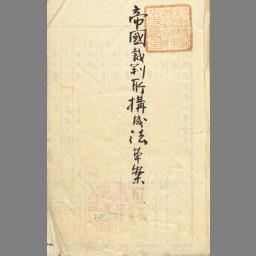 帝國裁判所構成法草案